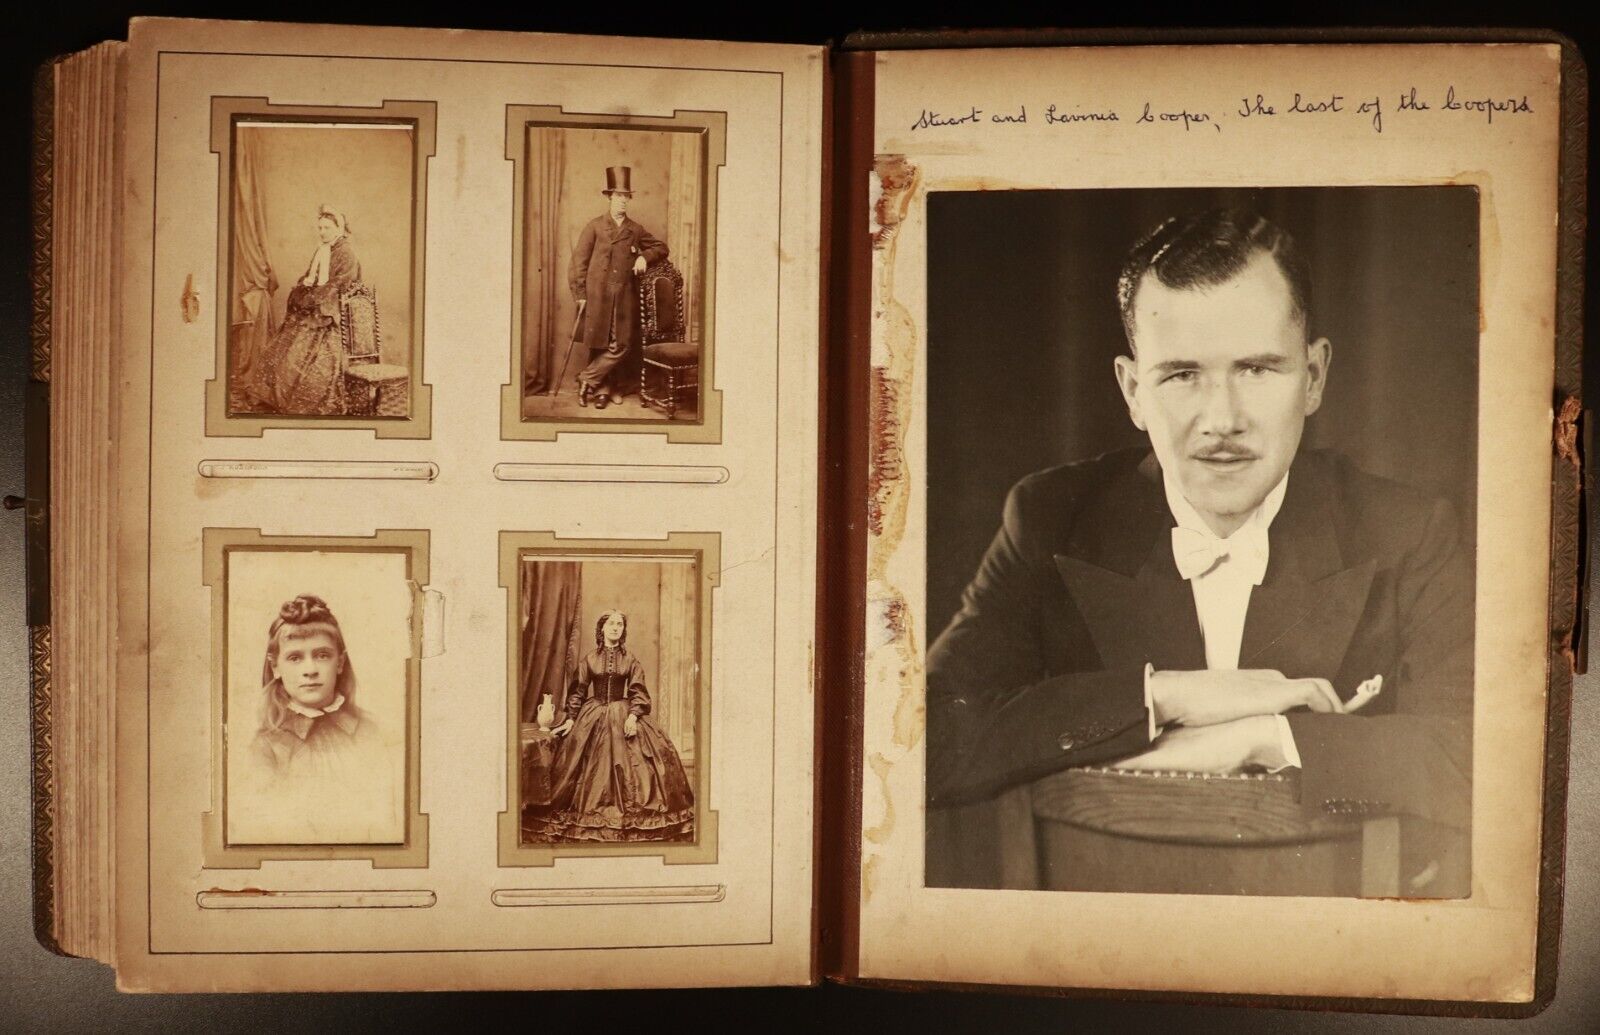 Stuart and Lavinia Cooper, The last of the Coopers